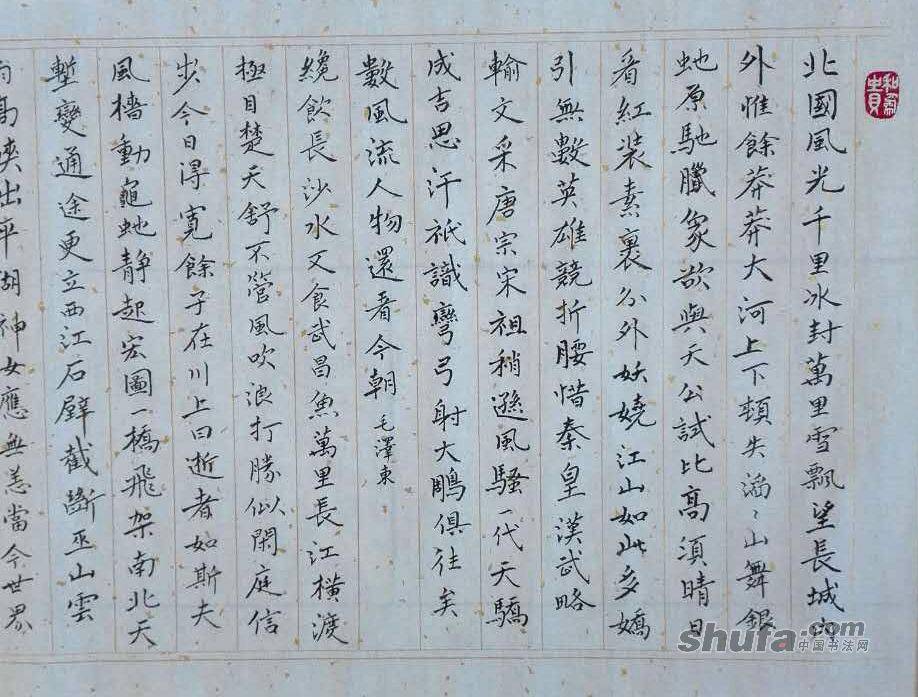 北國風光千里冰封萬里雪飄望長城內
外惟餘莽莽大河上下頓失滔〻山舞銀
虵原馳臘象欲與天公試比高須晴日
看紅裝素裹分外妖嬈江山如此多嬌
引無數英雄競折腰惜秦皇漢武略
輸文采唐宗宋祖稍遜風騷一代天驕
成吉思汗祇識彎弓射大鵰俱往矣
數風流人物還看今朝 毛澤東
纔飲長沙水又食武昌魚萬里長江橫渡
極目楚天舒不管風吹浪打勝似閑庭信
步今日得寬餘子在川上曰逝者如斯夫
風檣動龜虵靜起宏圖一橋飛架南北天
塹變通途更立西江石壁截斷巫山雲
雨高峽出平湖神女應無恙當今世界
和為貴
shufa.com
中国书法网